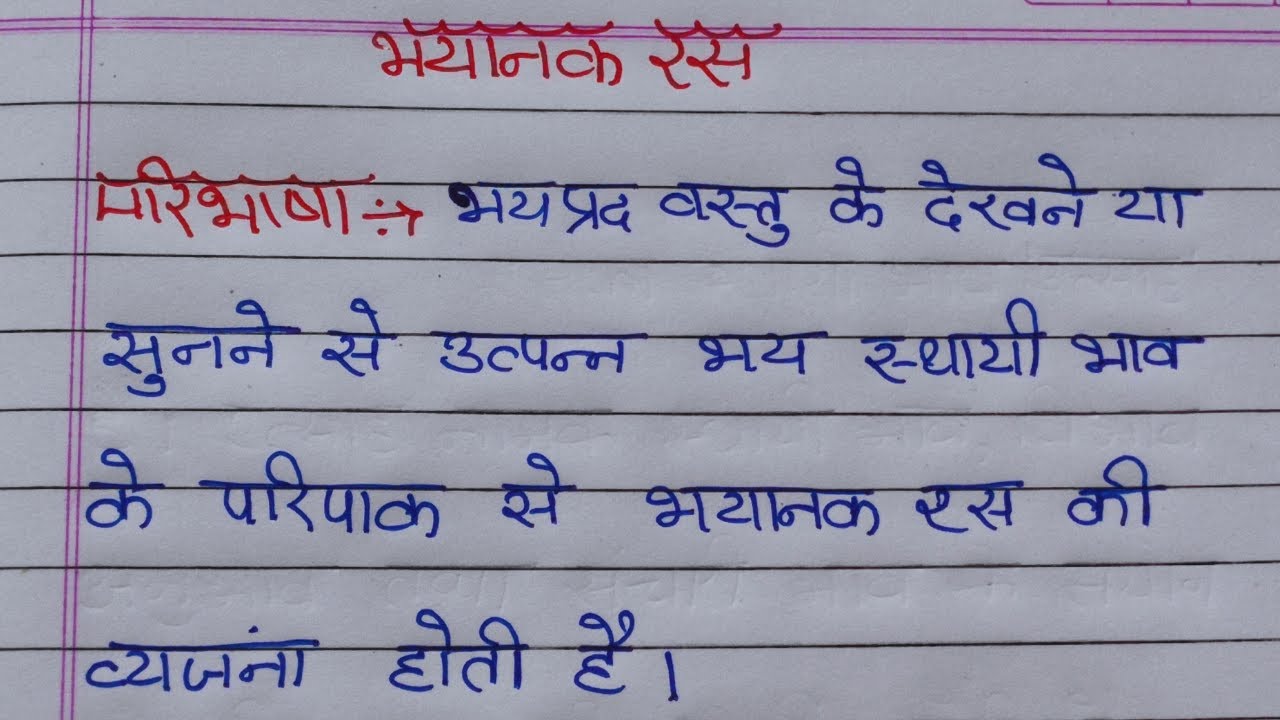 भयानक रस
परिभाषा ÷→ भयप्रद वस्तु के देखने या
सुनने से उत्पन्न भय स्थायी भाव
के परिपाक से भयानक रस की
व्यजंना होती है।